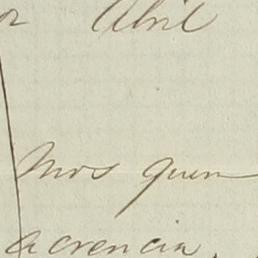 Abril
mos quin
acrencia,